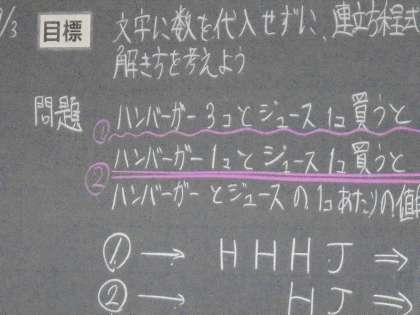 /3
目標 文字に数を代入せずに、連立方程式
解き方を考えよう
問題 ① ハンバーガー3コとジュース1コ買うと
② ハンバーガー1コとジュース1コ買うと
ハンバーガーとジュースの1コあたりの値
① → HHHJ ⇒
② → HJ ⇒